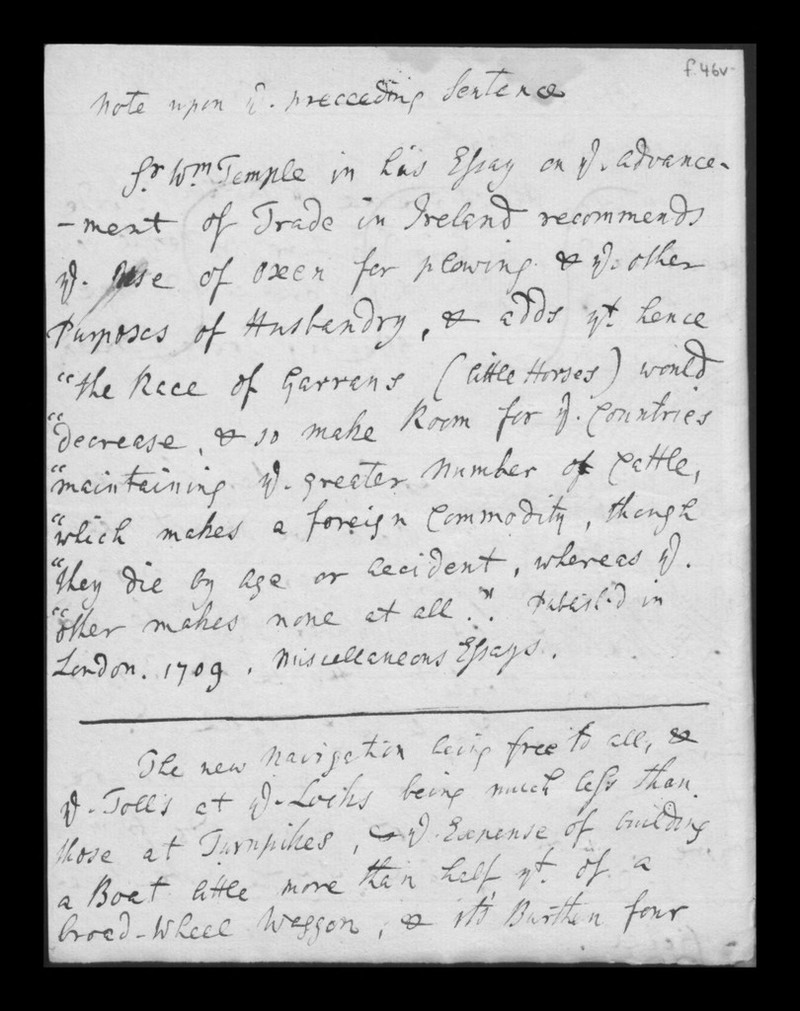 f.46v.
Note upon ye. preceeding Sentence
Sr. Wm Temple in his Essay on ye. Advance-
-ment of Trade in Ireland recommends
ye. Use of Oxen for plowing & ye. other
Purposes of Husbandry, & adds yt. hence
"the Race of Garrans (little Horses) would
"decrease, & so make Room for ye. Countries
"maintaining ye. greater Number of Cattle,
"which makes a foreign Commodity, though
"they die by Age or Accident, whereas ye.
"other makes none at all.". Publish'd in
London. 1709. Miscellaneous Essays.
The new Navigation being free to all, &
ye. Tolls at ye. Locks being much less than
those at Turnpikes, & ye. Expense of building
a Boat little more than half yt. of a
broad-wheel Waggon, & its Burthen four